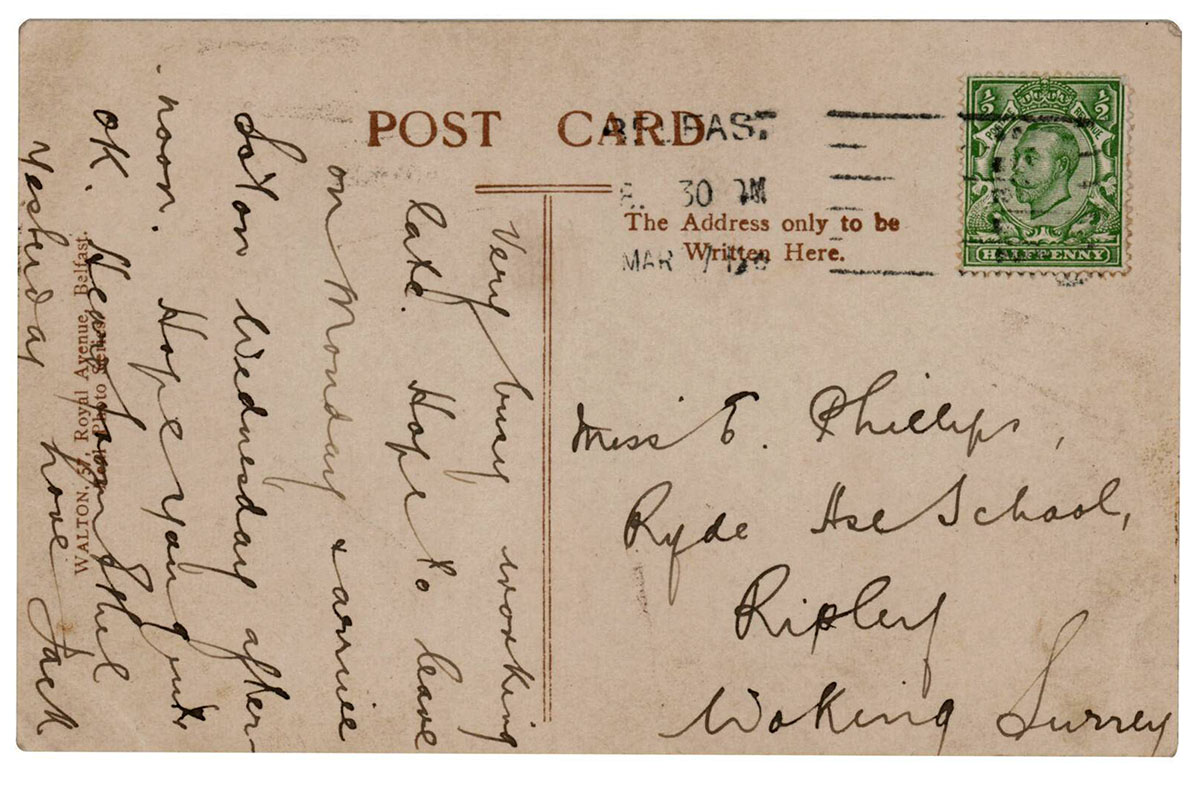 POST CARD
BELFAST
8. 30 PM
MAR
½ ½
POSTAGE
HALFPENNY
The Address only to be
Written Here.
Very busy working
late. Hope to leave
on Monday & arrive
So'ton Wednesday after-
noon. Hope you quite
OK. Heard from Ethel
Yesterday Love Jack
WALTON, 57, Royal Avenue, Belfast.
Real Photo Series.
Miss E. Phillips,
Ryde Hse School,
Ripley
Woking Surrey